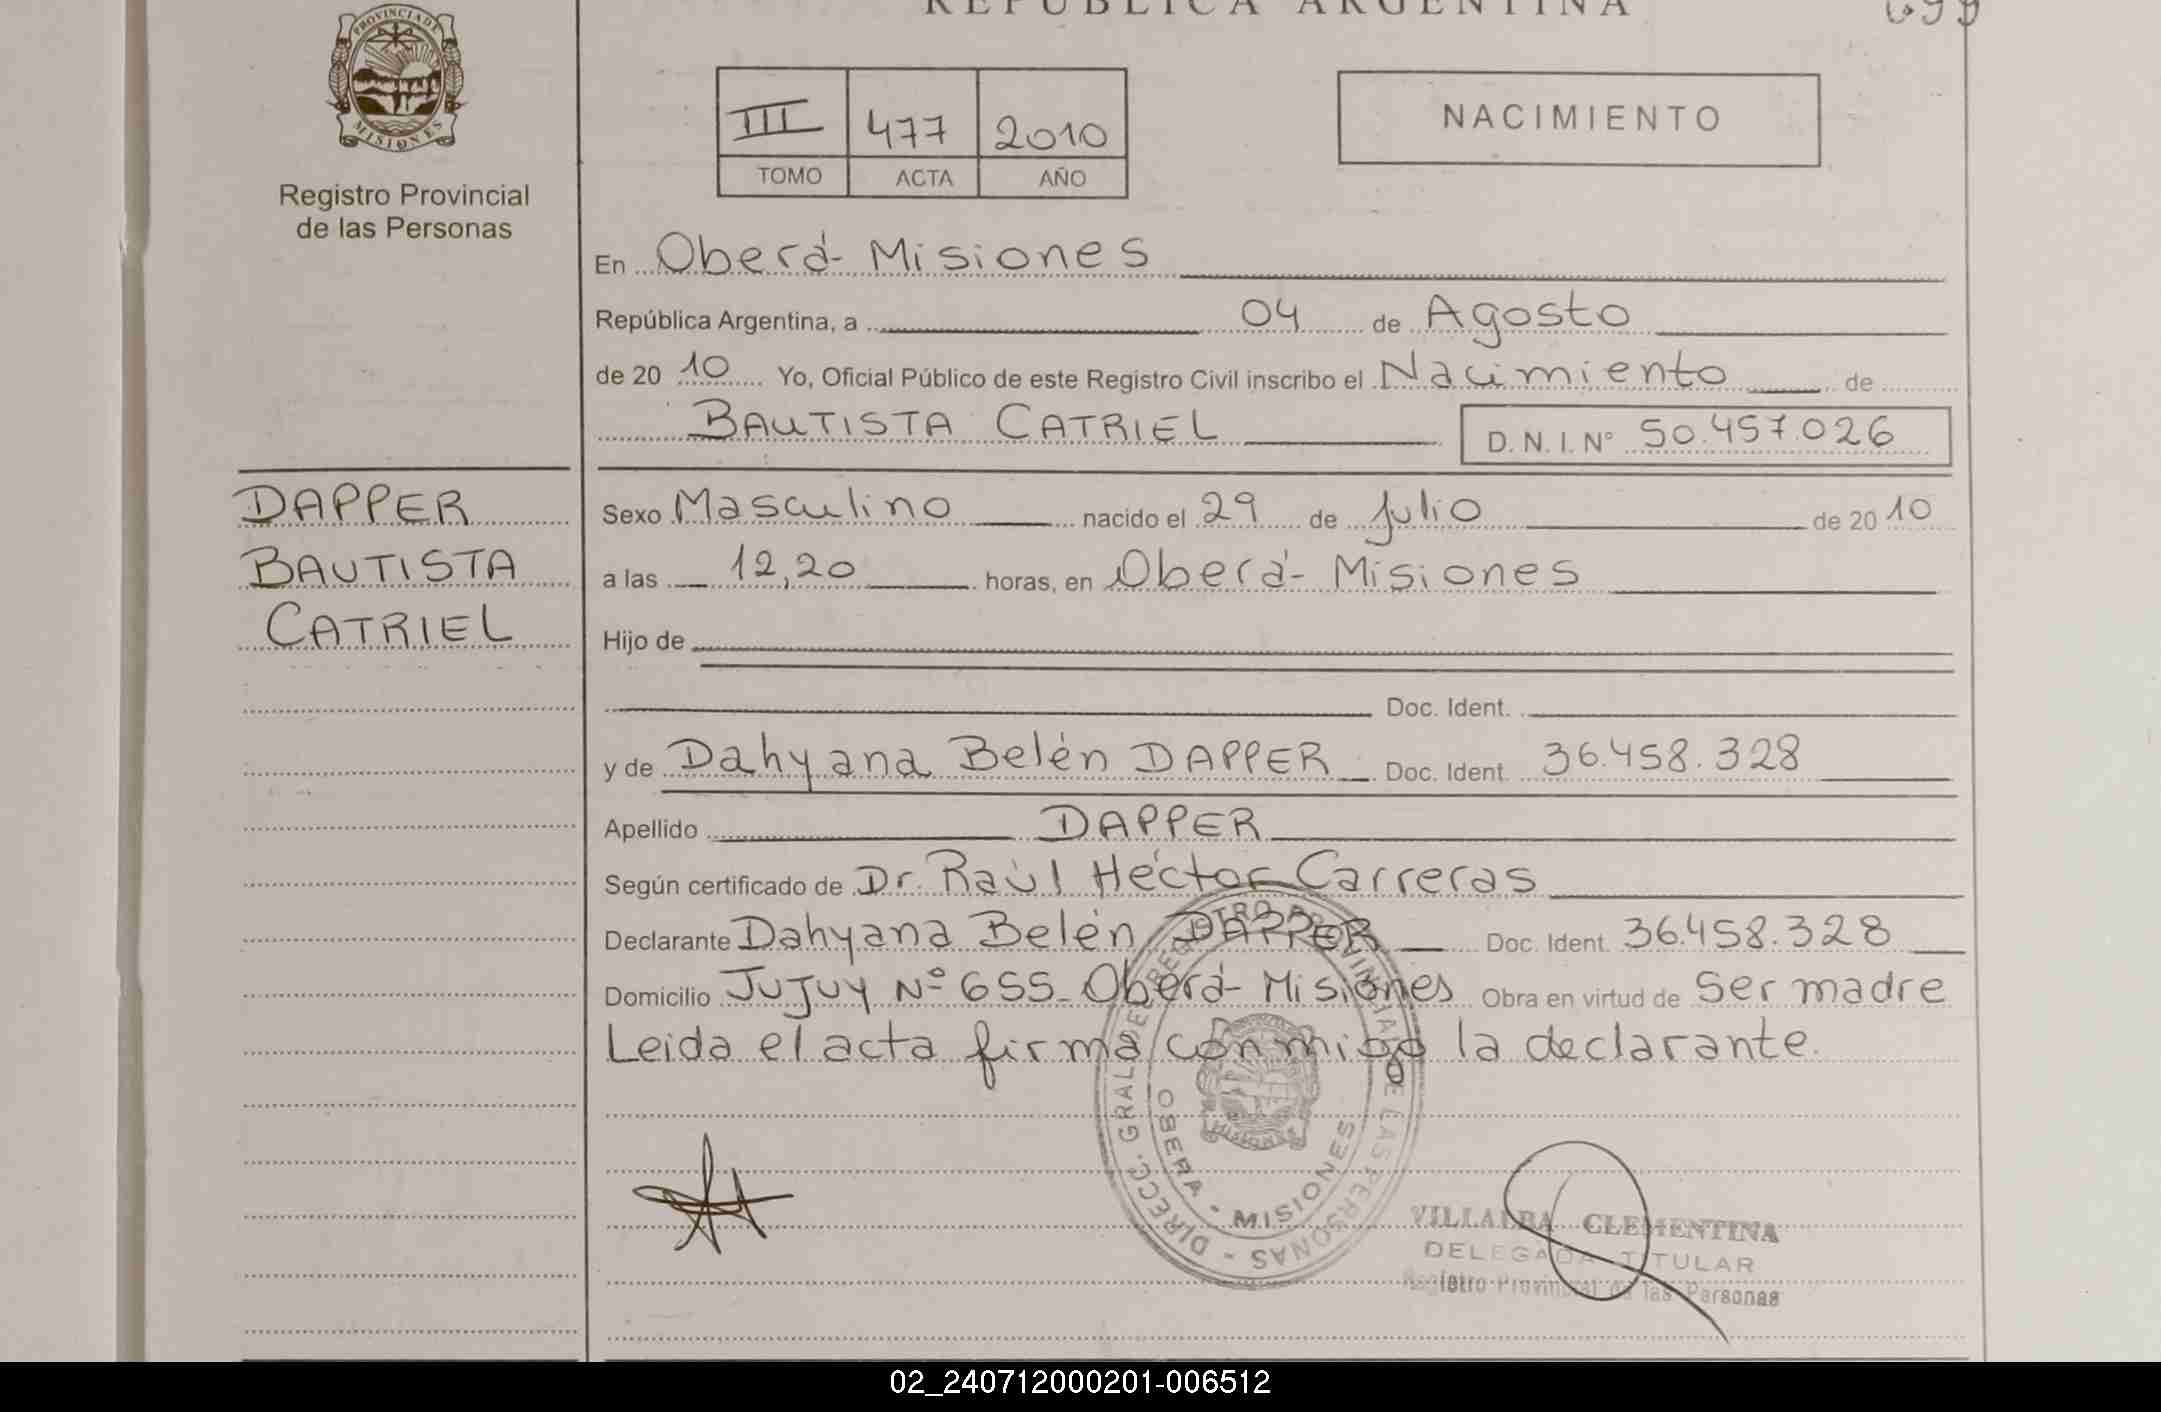 REPUBLICA ARGENTINA
PROVINCIA DE
MISIONES
Registro Provincial
de las Personas
III 477 2010
TOMO ACTA AÑO
NACIMIENTO
En Oberá - Misiones
República Argentina, a 04 de Agosto
de 20 10 Yo, Oficial Público de este Registro Civil inscribo el Nacimiento de
BAUTISTA CATRIEL D. N. I. N° 50.457.026
DAPPER
BAUTISTA
CATRIEL
Sexo Masculino nacido el 29 de Julio de 20 10
a las 12,20 horas, en Oberá - Misiones
Hijo de
Doc. Ident.
y de Dahyana Belén DAPPER Doc. Ident. 36.458.328
Apellido DAPPER
Según certificado de Dr. Raúl Héctor Carreras
Declarante Dahyana Belén DAPPER Doc. Ident. 36.458.328
Domicilio JUJUY Nº 655 - Oberá - Misiones Obra en virtud de ser madre
Leida el acta firma conmigo la declarante.
DIRECC. GRAL. DE REGISTRO PROVINCIAL DE LAS PERSONAS -
OBERA - MISIONES
MISIONES
VILLALBA CLEMENTINA
DELEGADA TITULAR
Registro Provincial de las Personas
02_240712000201-006512